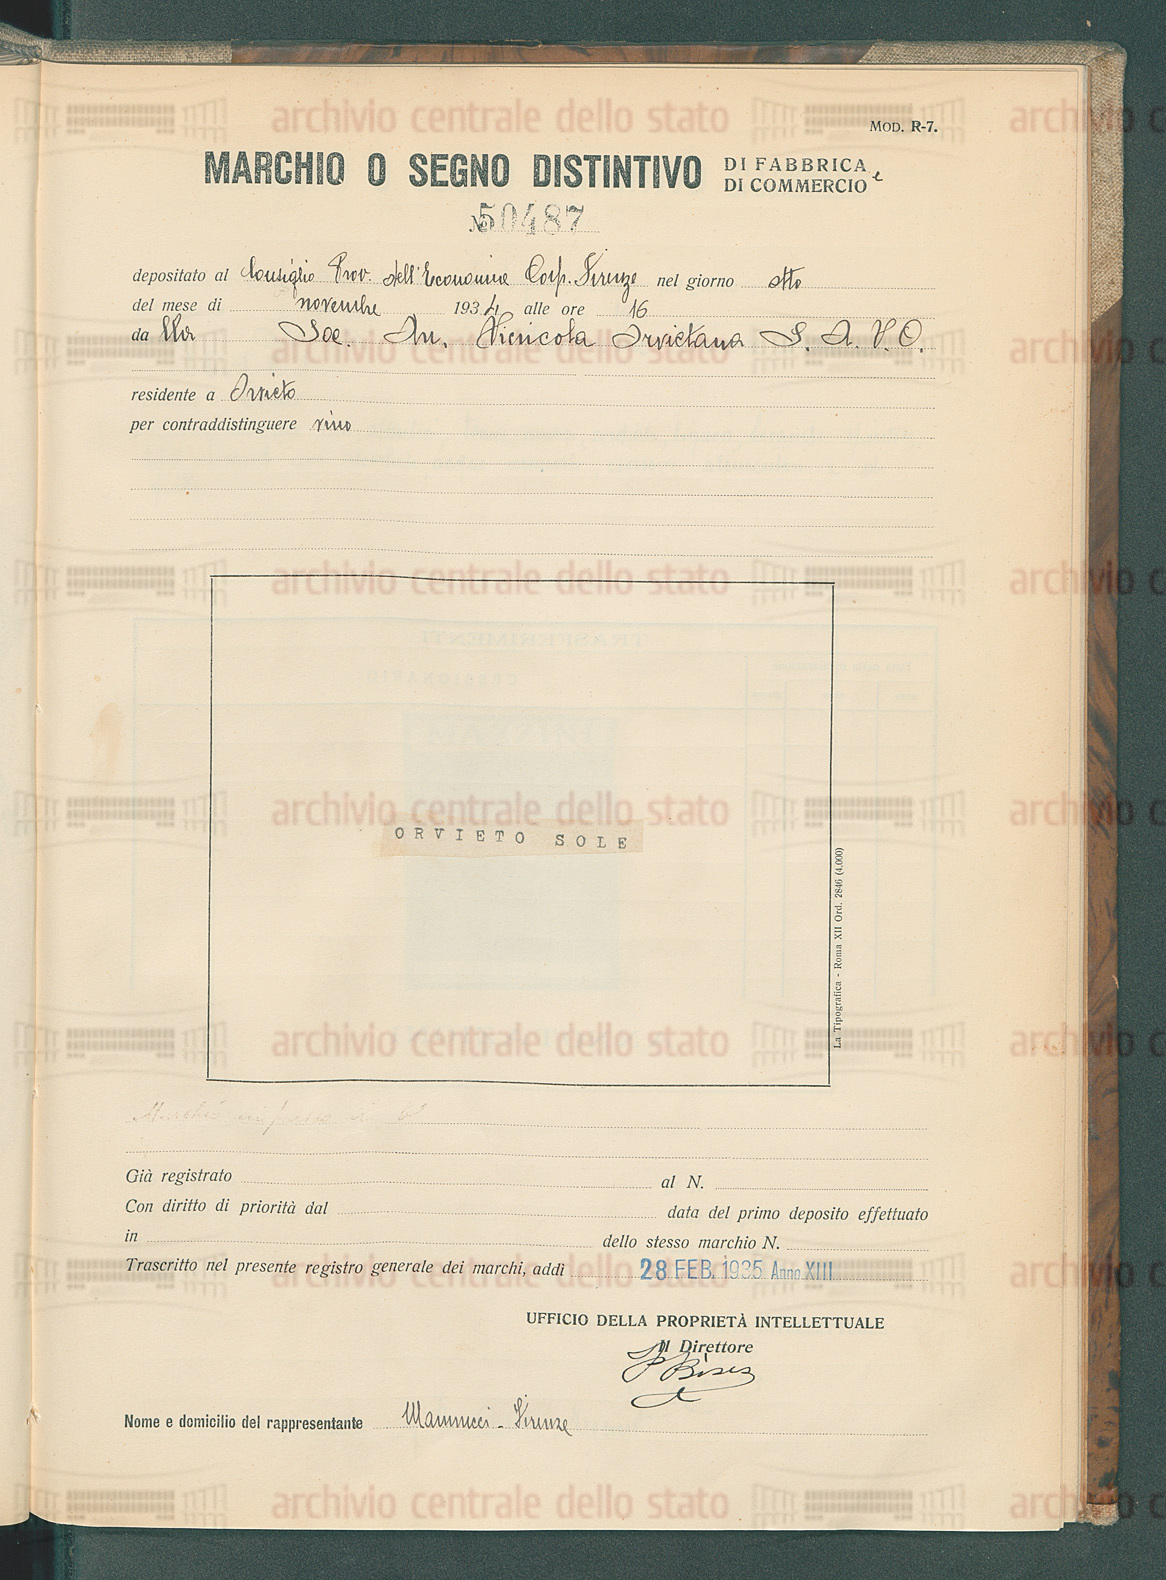 MOD. R-7.
MARCHIO O SEGNO DISTINTIVO DI FABBRICA e
DI COMMERCIO
No 50487
depositato al Consiglio Prov. dell'Economia Corp. Firenze nel giorno otto
del mese di novembre 1934 alle ore 16
da lla Soc. An. Vinicola Orvietana S. A. V. O.
residente a Orvieto
per contraddistinguere vino
TRASFERIMENTI
CESSIONARIO
ORVIETO SOLE
La Tipografica - Roma XII Ord. 2846 (4.000)
Marchio
Già registrato al N.
Con diritto di priorità dal data del primo deposito effettuato
in dello stesso marchio N.
Trascritto nel presente registro generale dei marchi, addì 28 FEB. 1935 Anno XIII
UFFICIO DELLA PROPRIETÀ INTELLETTUALE
Il Direttore
Nome e domicilio del rappresentante Mannucci - Firenze
archivio centrale dello stato